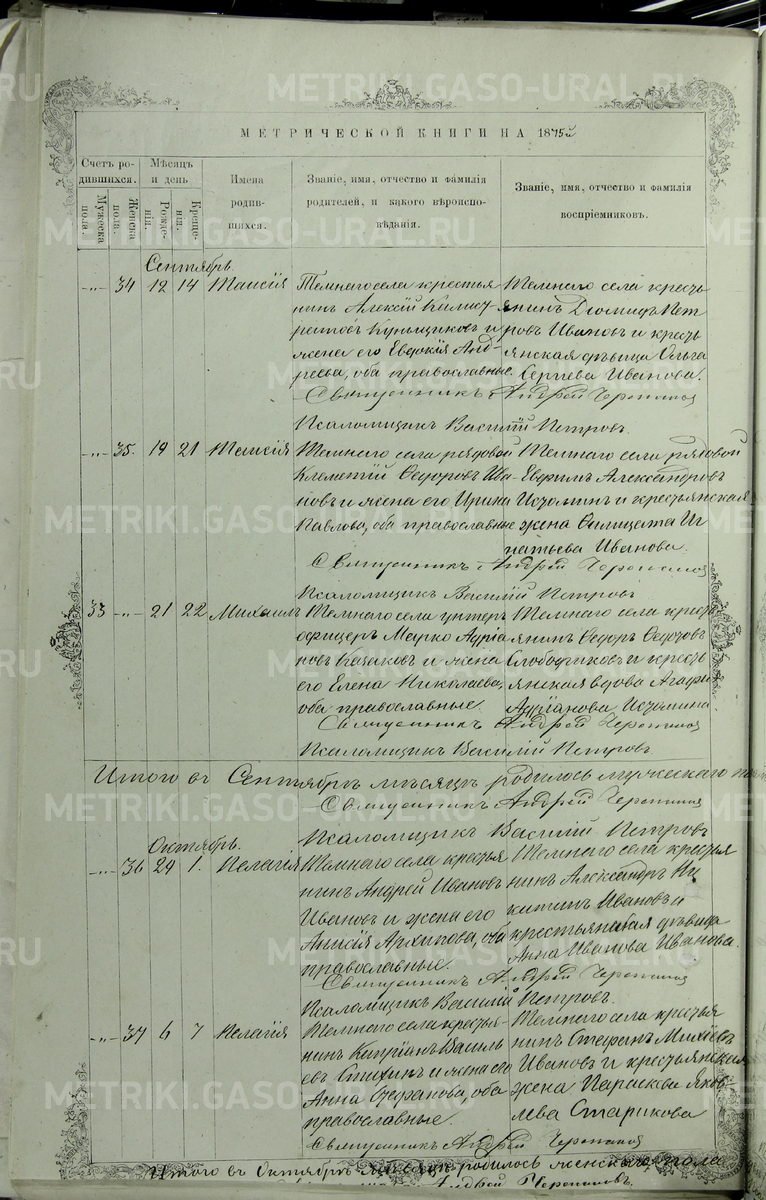 МЕТРИЧЕСКОЙ КНИГИ НА 1875й
Счетъ ро-
дившихся.
Мужеска
пола.
Женска
пола.
Мѣсяцъ
и день
Рожде-
нія.
Креще-
нія.
Имена
родив-
шихся.
Званіе, имя, отчество и фамилія
родителей, и какого вѣроиспо-
вѣданія.
Званіе, имя, отчество и фамилія
воспріемниковъ.
Сентябрь.
-„- 34 12 14 Таисія
Темнаго села крестья
нинъ Алексій Калист
ратовъ Кунщиковъ и
жена его Евдокія Анд-
реева, оба православные.
Темнаго села кресть
янинъ Діомидъ Пет
ровъ Ивановъ и кресть
янская дѣвица Ольга
Сергіева Иванова.
Священникъ Андрей
Псаломщикъ Василій Петровъ.
-„- 35. 19 21 Таисія
Темнаго села рядовой
Клементій Ѳедоровъ Ива-
новъ и жена его Ирина
Павлова, оба православные
Темнаго села рядовой
Евфимъ Александровъ
Изгоминъ и крестьянская
жена Иг
натьева Иванова.
Священникъ Андрей
Псаломщикъ Василій Петровъ
33 -„- 21 22 Михаилъ
Темнаго села унтеръ
офицеръ Марко Адріа
новъ Казаковъ и жена
его Елена Николаева,
оба православные.
Темнаго села кресть
янинъ Ѳедоръ Ѳедоровъ
Слободчиковъ и кресть
янская вдова Агафья
Адріанова
Священникъ Андрей
Псаломщикъ Василій Петровъ
Итого въ Сентябрѣ мѣсяцѣ родилось мужескаго
Священникъ Андрей
Псаломщикъ Василій Петровъ
Октябрь.
-„- 36 29 1. Пелагія
Темнаго села крестья
нинъ Андрей Ивановъ
Ивановъ и жена его
Анисія Архипова, оба
православные.
Темнаго села крестья
нинъ Александръ Ни
китинъ Ивановъ и
крестьянская дѣвица
Анна Иванова Иванова.
Священникъ Андрей
Псаломщикъ Василій Петровъ.
-„- 37 6 7 Пелагія
Темнаго села крестья-
нинъ Кипріанъ Василь
евъ Стихинъ и жена его
Анна Стефанова, оба
православные.
Темнаго села крестья
нинъ Стефанъ Михѣевъ
Ивановъ и крестьянская
жена Параскева Яков-
лева Старикова
Священникъ Андрей
Итого въ Октябрѣ мѣсяцѣ родилось женскаго пола
Андрей
METRIKI.GASO-URAL.RU